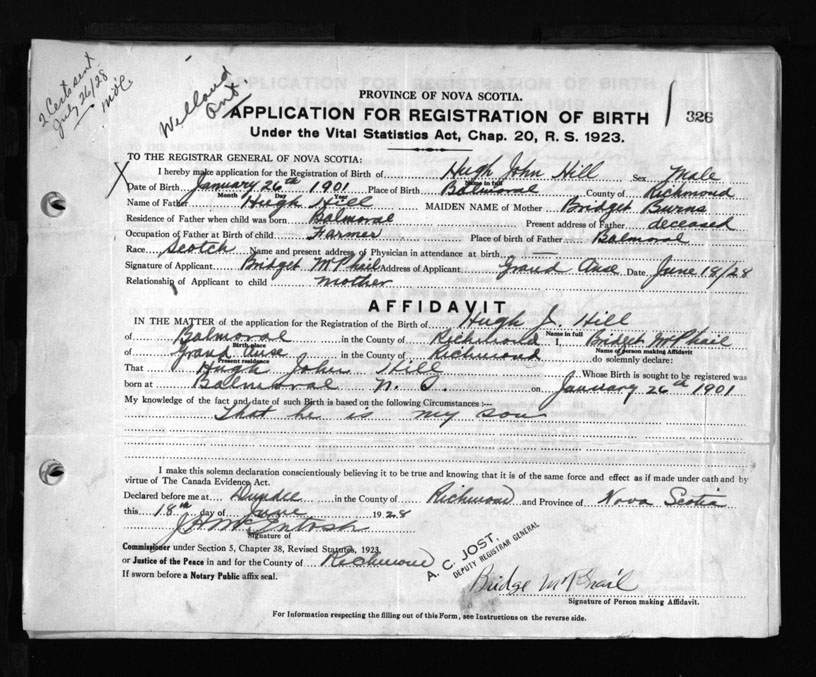 2 Certs sent
July 26/28
Welland
Ont.
PROVINCE OF NOVA SCOTIA.
APPLICATION FOR REGISTRATION OF BIRTH
326
Under the Vital Statistics Act, Chap. 20, R. S. 1923.
TO THE REGISTRAR GENERAL OF NOVA SCOTIA:
I hereby make application for the Registration of Birth of Hugh John Hill Sex Male
Name in full
Date of Birth January 26th 1901 Place of Birth Balmoral County of Richmond
Month Day Year
Name of Father Hugh Hill MAIDEN NAME of Mother Bridget Burns
Residence of Father when child was born Balmoral Present address of Father deceased
Occupation of Father at Birth of child Farmer Place of birth of Father Balmoral
Race Scotch Name and present address of Physician in attendance at birth —
Signature of Applicant Bridget McPhail Address of Applicant Grand Anse Date June 18/28
Relationship of Applicant to child mother
AFFIDAVIT
IN THE MATTER of the application for the Registration of the Birth of Hugh J. Hill
Name in full
of Balmoral in the County of Richmond I, Bridget McPhail
Birth place
Name of person making Affidavit
of Grand Anse in the County of Richmond do solemnly declare:
Present residence
That Hugh John Hill Whose Birth is sought to be registered was
born at Balmoral N. S. on January 26th 1901
My knowledge of the fact and date of such Birth is based on the following Circumstances :—
That he is my son
I make this solemn declaration conscientiously believing it to be true and knowing that it is of the same force and effect as if made under oath and by
virtue of The Canada Evidence Act.
Declared before me at Dundee in the County of Richmond and Province of Nova Scotia
this 18th day of June 1928
J H McIntosh
Signature of
Commissioner under Section 5, Chapter 38, Revised Statutes, 1923
or Justice of the Peace in and for the County of Richmond
If sworn before a Notary Public affix seal.
A. C. JOST,
DEPUTY REGISTRAR GENERAL
Bridge McPhail
Signature of Person making Affidavit.
For Information respecting the filling out of this Form, see Instructions on the reverse side.